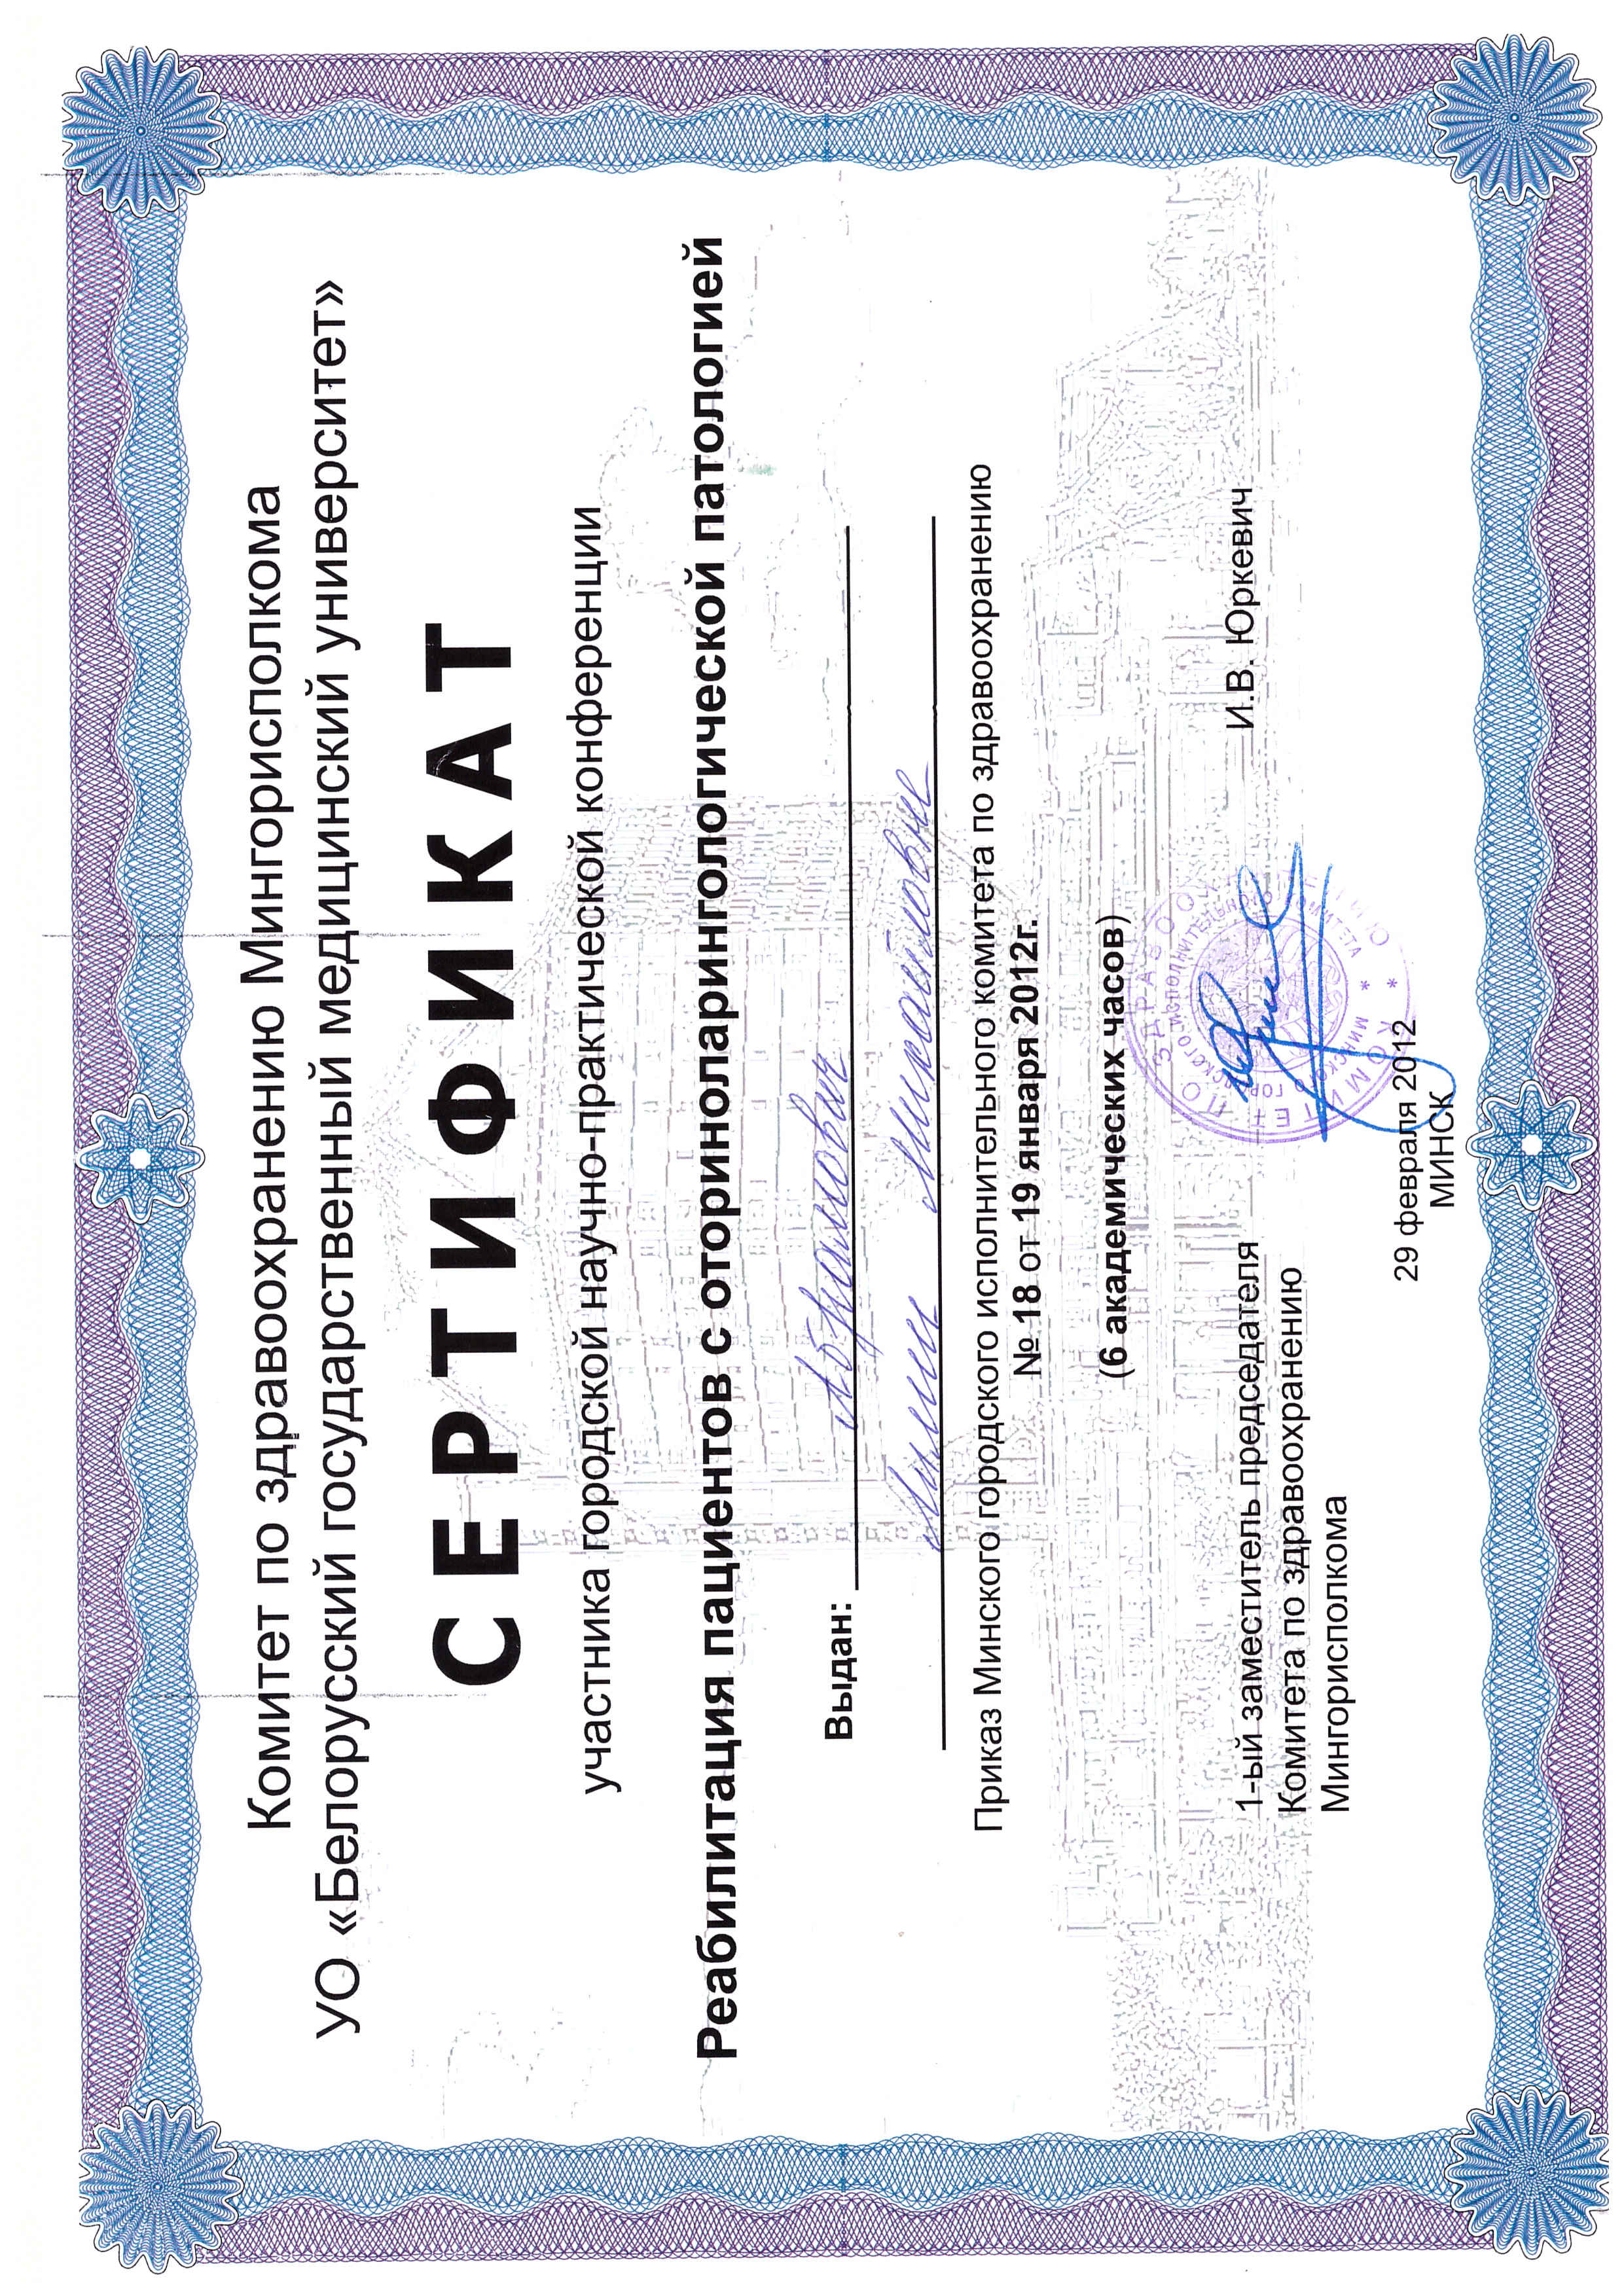 Комитет по здравоохранению Мингорисполкома
УО «Белорусский государственный медицинский университет»
СЕРТИФИКАТ
участника городской научно-практической конференции
Реабилитация пациентов с оториноларингологической патологией
Выдан: Абрамович
Лилии Михайловне
Приказ Минского городского исполнительного комитета по здравоохранению
№ 18 от 19 января 2012г.
(6 академических часов)
1-ый заместитель председателя
Комитета по здравоохранению
Мингорисполкома
И.В. Юркевич
29 февраля 2012
МИНСК